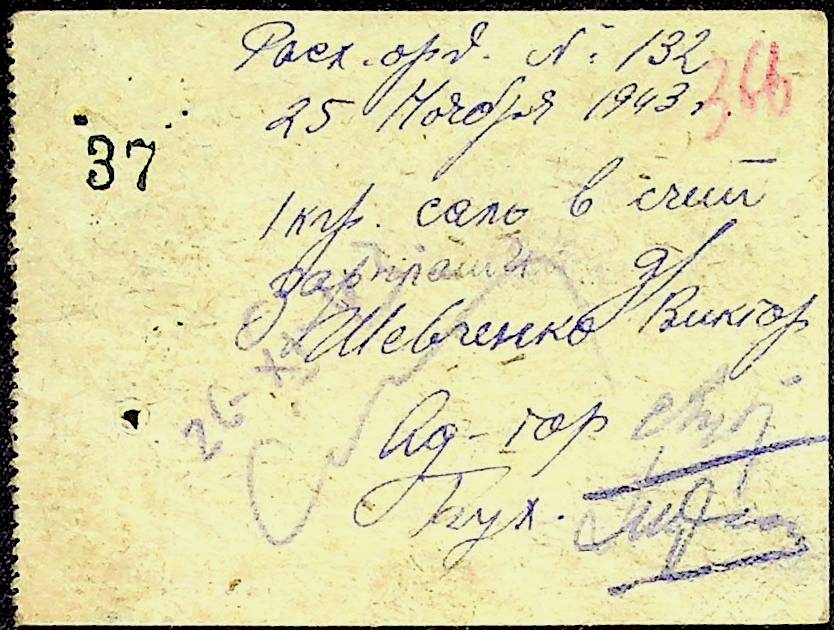 Расх. орд. №: 132
366
25 Ноября 1943 г.
37
1 кгр. соль в счет
зарплаты д/
Шевченко Виктор
26-XI
Ад-тор
Бух.